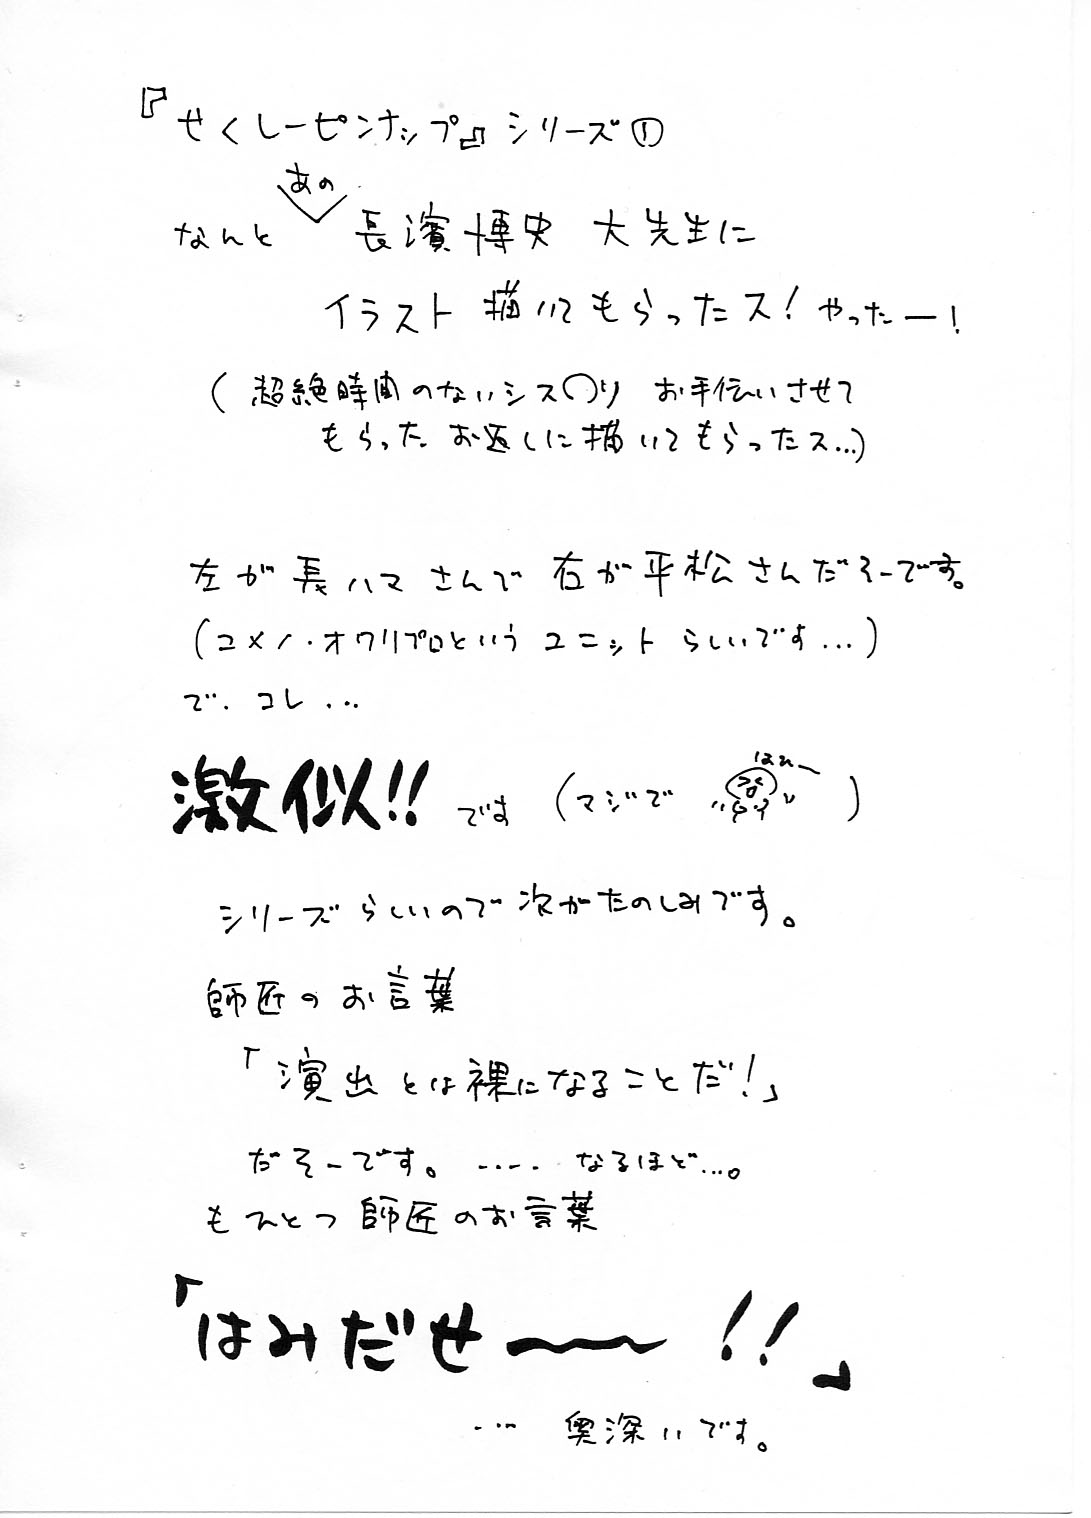 『せくしーピンナップ』シリーズ①
あの
なんと 長濱博史 大先生に
イラスト 描いてもらったス！やったー！
（超絶時間のないシス〇リ お手伝いさせて
もらった お返しに描いてもらったス…）
左が長ハマさんで 右が平松さんだそーです。
（ユメノ・オワリプロという ユニット らしいです…）
で．コレ…
激似!! です （マジで はれー ）
シリーズらしいので次がたのしみです。
師匠のお言葉
「演出とは裸になることだ！」
だそーです。‥‥ なるほど…。
もひとつ 師匠のお言葉
「はみだせ〜〜！！」
… 奥深いです。